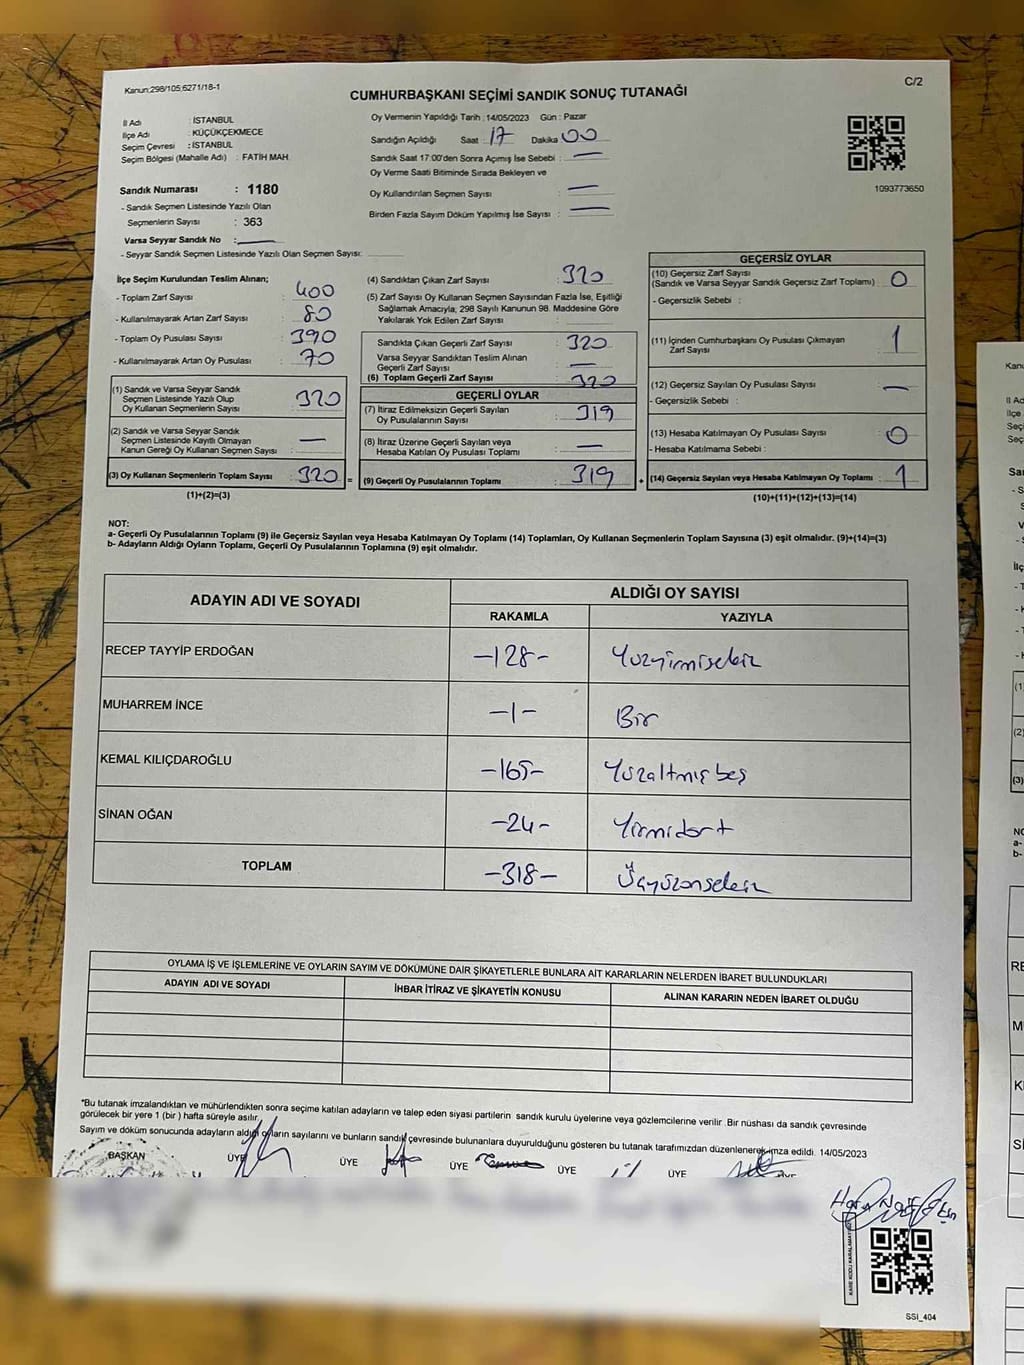 Kanun:298/105;6271/18-1
C/2
CUMHURBAŞKANI SEÇİMİ SANDIK SONUÇ TUTANAĞI
İl Adı : İSTANBUL
İlçe Adı : KÜÇÜKÇEKMECE
Seçim Çevresi : İSTANBUL
Seçim Bölgesi (Mahalle Adı) : FATİH MAH.
Sandık Numarası : 1180
- Sandık Seçmen Listesinde Yazılı Olan
Seçmenlerin Sayısı : 363
Varsa Seyyar Sandık No :
- Seyyar Sandık Seçmen Listesinde Yazılı Olan Seçmen Sayısı:
Oy Vermenin Yapıldığı Tarih : 14/05/2023 Gün : Pazar
Sandığın Açıldığı Saat 17 Dakika 00
Sandık Saat 17:00'den Sonra Açımış İse Sebebi : —
Oy Verme Saati Bitiminde Sırada Bekleyen ve
Oy Kullandırılan Seçmen Sayısı : —
Birden Fazla Sayım Döküm Yapılmış İse Sayısı : —
1093773650
İlçe Seçim Kurulundan Teslim Alınan;
- Toplam Zarf Sayısı : 400
- Kullanılmayarak Artan Zarf Sayısı : 80
- Toplam Oy Pusulası Sayısı : 390
- Kullanılmayarak Artan Oy Pusulası : 70
(1) Sandık ve Varsa Seyyar Sandık
Seçmen Listesinde Yazılı Olup
Oy Kullanan Seçmenlerin Sayısı : 320
(2) Sandık ve Varsa Seyyar Sandık
Seçmen Listesinde Kayıtlı Olmayan
Kanun Gereği Oy Kullanan Seçmen Sayısı : —
(3) Oy Kullanan Seçmenlerin Toplam Sayısı : 320 =
(1)+(2)=(3)
(4) Sandıktan Çıkan Zarf Sayısı : 320
(5) Zarf Sayısı Oy Kullanan Seçmen Sayısından Fazla İse, Eşitliği
Sağlamak Amacıyla; 298 Sayılı Kanunun 98. Maddesine Göre
Yakılarak Yok Edilen Zarf Sayısı :
Sandıkta Çıkan Geçerli Zarf Sayısı : 320
Varsa Seyyar Sandıktan Teslim Alınan
Geçerli Zarf Sayısı : —
(6) Toplam Geçerli Zarf Sayısı : 320
GEÇERLİ OYLAR
(7) İtiraz Edilmeksizin Geçerli Sayılan
Oy Pusulalarının Sayısı : 319
(8) İtiraz Üzerine Geçerli Sayılan veya
Hesaba Katılan Oy Pusulası Toplamı : —
(9) Geçerli Oy Pusulalarının Toplamı : 319 +
GEÇERSİZ OYLAR
(10) Geçersiz Zarf Sayısı
(Sandık ve Varsa Seyyar Sandık Geçersiz Zarf Toplamı) : 0
- Geçersizlik Sebebi :
(11) İçinden Cumhurbaşkanı Oy Pusulası Çıkmayan
Zarf Sayısı : 1
(12) Geçersiz Sayılan Oy Pusulası Sayısı : —
- Geçersizlik Sebebi :
(13) Hesaba Katılmayan Oy Pusulası Sayısı : 0
- Hesaba Katılmama Sebebi :
(14) Geçersiz Sayılan veya Hesaba Katılmayan Oy Toplamı : 1
(10)+(11)+(12)+(13)=(14)
NOT:
a- Geçerli Oy Pusulalarının Toplamı (9) ile Geçersiz Sayılan veya Hesaba Katılmayan Oy Toplamı (14) Toplamları, Oy Kullanan Seçmenlerin Toplam Sayısına (3) eşit olmalıdır. (9)+(14)=(3)
b- Adayların Aldığı Oyların Toplamı, Geçerli Oy Pusulalarının Toplamına (9) eşit olmalıdır.
ADAYIN ADI VE SOYADI
ALDIĞI OY SAYISI
RAKAMLA YAZIYLA
RECEP TAYYİP ERDOĞAN -128- Yüzyirmisekiz
MUHARREM İNCE -1- Bir
KEMAL KILIÇDAROĞLU -165- Yüzaltmışbeş
SİNAN OĞAN -24- Yirmidört
TOPLAM -318- Üçyüzonsekiz
OYLAMA İŞ VE İŞLEMLERİNE VE OYLARIN SAYIM VE DÖKÜMÜNE DAİR ŞİKAYETLERLE BUNLARA AİT KARARLARIN NELERDEN İBARET BULUNDUKLARI
ADAYIN ADI VE SOYADI İHBAR İTİRAZ VE ŞİKAYETİN KONUSU ALINAN KARARIN NEDEN İBARET OLDUĞU
*Bu tutanak imzalandıktan ve mühürlendikten sonra seçime katılan adayların ve talep eden siyasi partilerin sandık kurulu üyelerine veya gözlemcilerine verilir. Bir nüshası da sandık çevresinde
görülecek bir yere 1 (bir ) hafta süreyle asılır.
Sayım ve döküm sonucunda adayların aldığı oyların sayılarını ve bunların sandık çevresinde bulunanlara duyurulduğunu gösteren bu tutanak tarafımızdan düzenlenerek imza edildi. 14/05/2023
BAŞKAN ÜYE ÜYE ÜYE ÜYE ÜYE ÜYE
SSI_404